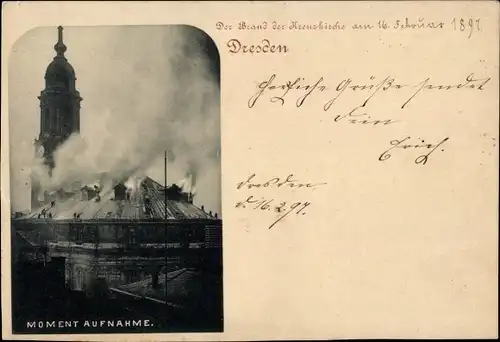 Der Brand der Kreuzkirche am 16. Februar 1897
Dresden
Herzliche Grüße sendet
Dein
Erich.
Dresden
d. 16.2.97.
MOMENT AUFNAHME.